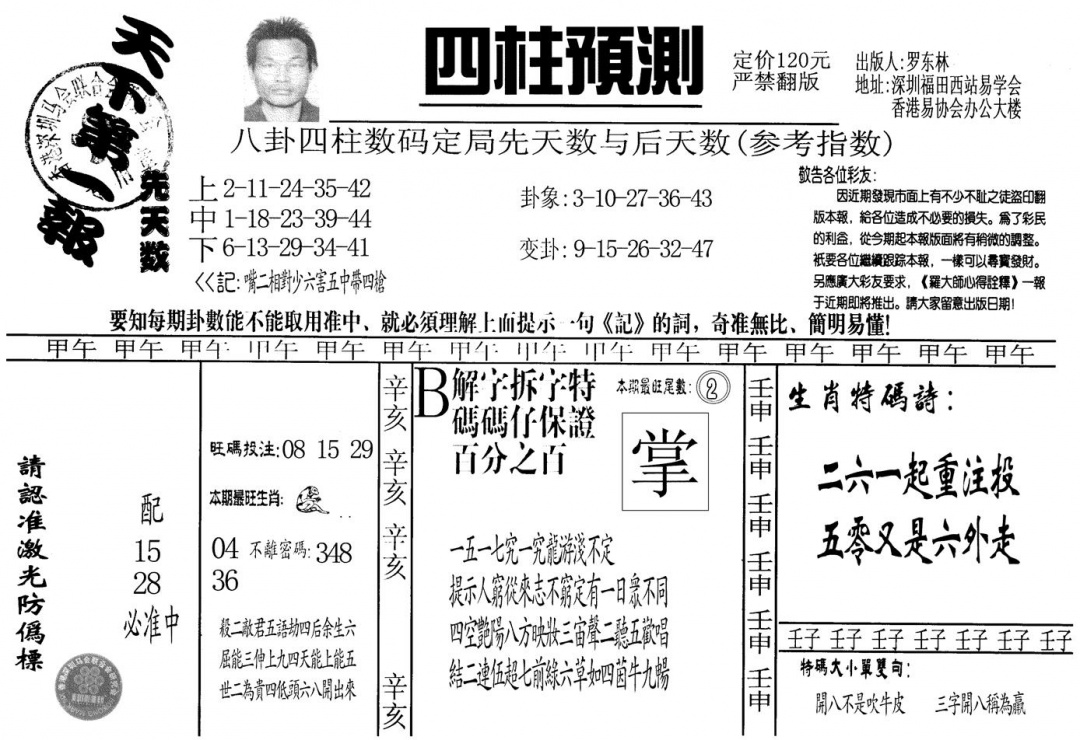 天下第一報
先天数
四柱預測
定价120元
严禁翻版
出版人:罗东林
地址:深圳福田西站易学会
香港易协会办公大楼
八卦四柱数码定局先天数与后天数(参考指数)
上2-11-24-35-42
中1-18-23-39-44
下6-13-29-34-41
<<記:嘴二相對少六害五中帶四槍
卦象:3-10-27-36-43
变卦:9-15-26-32-47
敬告各位彩友:
因近期發現市面上有不少不耻之徒盜印翻
版本報,給各位造成不必要的損失。爲了彩民
的利益,從今期起本報版面將有稍微的調整。
衹要各位繼續跟踪本報,一樣可以尋寶發財。
另應廣大彩友要求,《羅大師心得詮釋》一報
于近期即將推出。請大家留意出版日期!
要知每期卦數能不能取用准中、就必須理解上面提示一句《記》的詞,奇准無比、簡明易懂!
甲午 甲午 甲午 甲午 甲午 甲午 甲午 甲午 甲午 甲午 甲午 甲午 甲午 甲午 甲午
請認准激光防僞標
配
15
28
必准中
旺碼投注:08 15 29
本期最旺生肖:
04 不離密碼:348
36
殺二敵君五語劫四后余生六
屈能三伸上九四天能上能五
世二為貴四低頭六八開出來
辛亥
辛亥
辛亥
辛亥
B解字拆字特
碼碼仔保證
百分之百
本期最旺尾數:2
掌
一五一七究一究龍游淺不定
提示人窮從來志不窮定有一日衆不同
四空艷陽八方映妝三宙聲二聽五歡唱
結二連伍超七前綠六草如四茵牛九暢
壬申
壬申
壬申
壬申
壬申
壬申
生肖特碼詩:
二六一起重注投
五零又是六外走
壬子 壬子 壬子 壬子 壬子 壬子 壬子
特碼大小單雙句:
開八不是吹牛皮 三字開八稱為贏